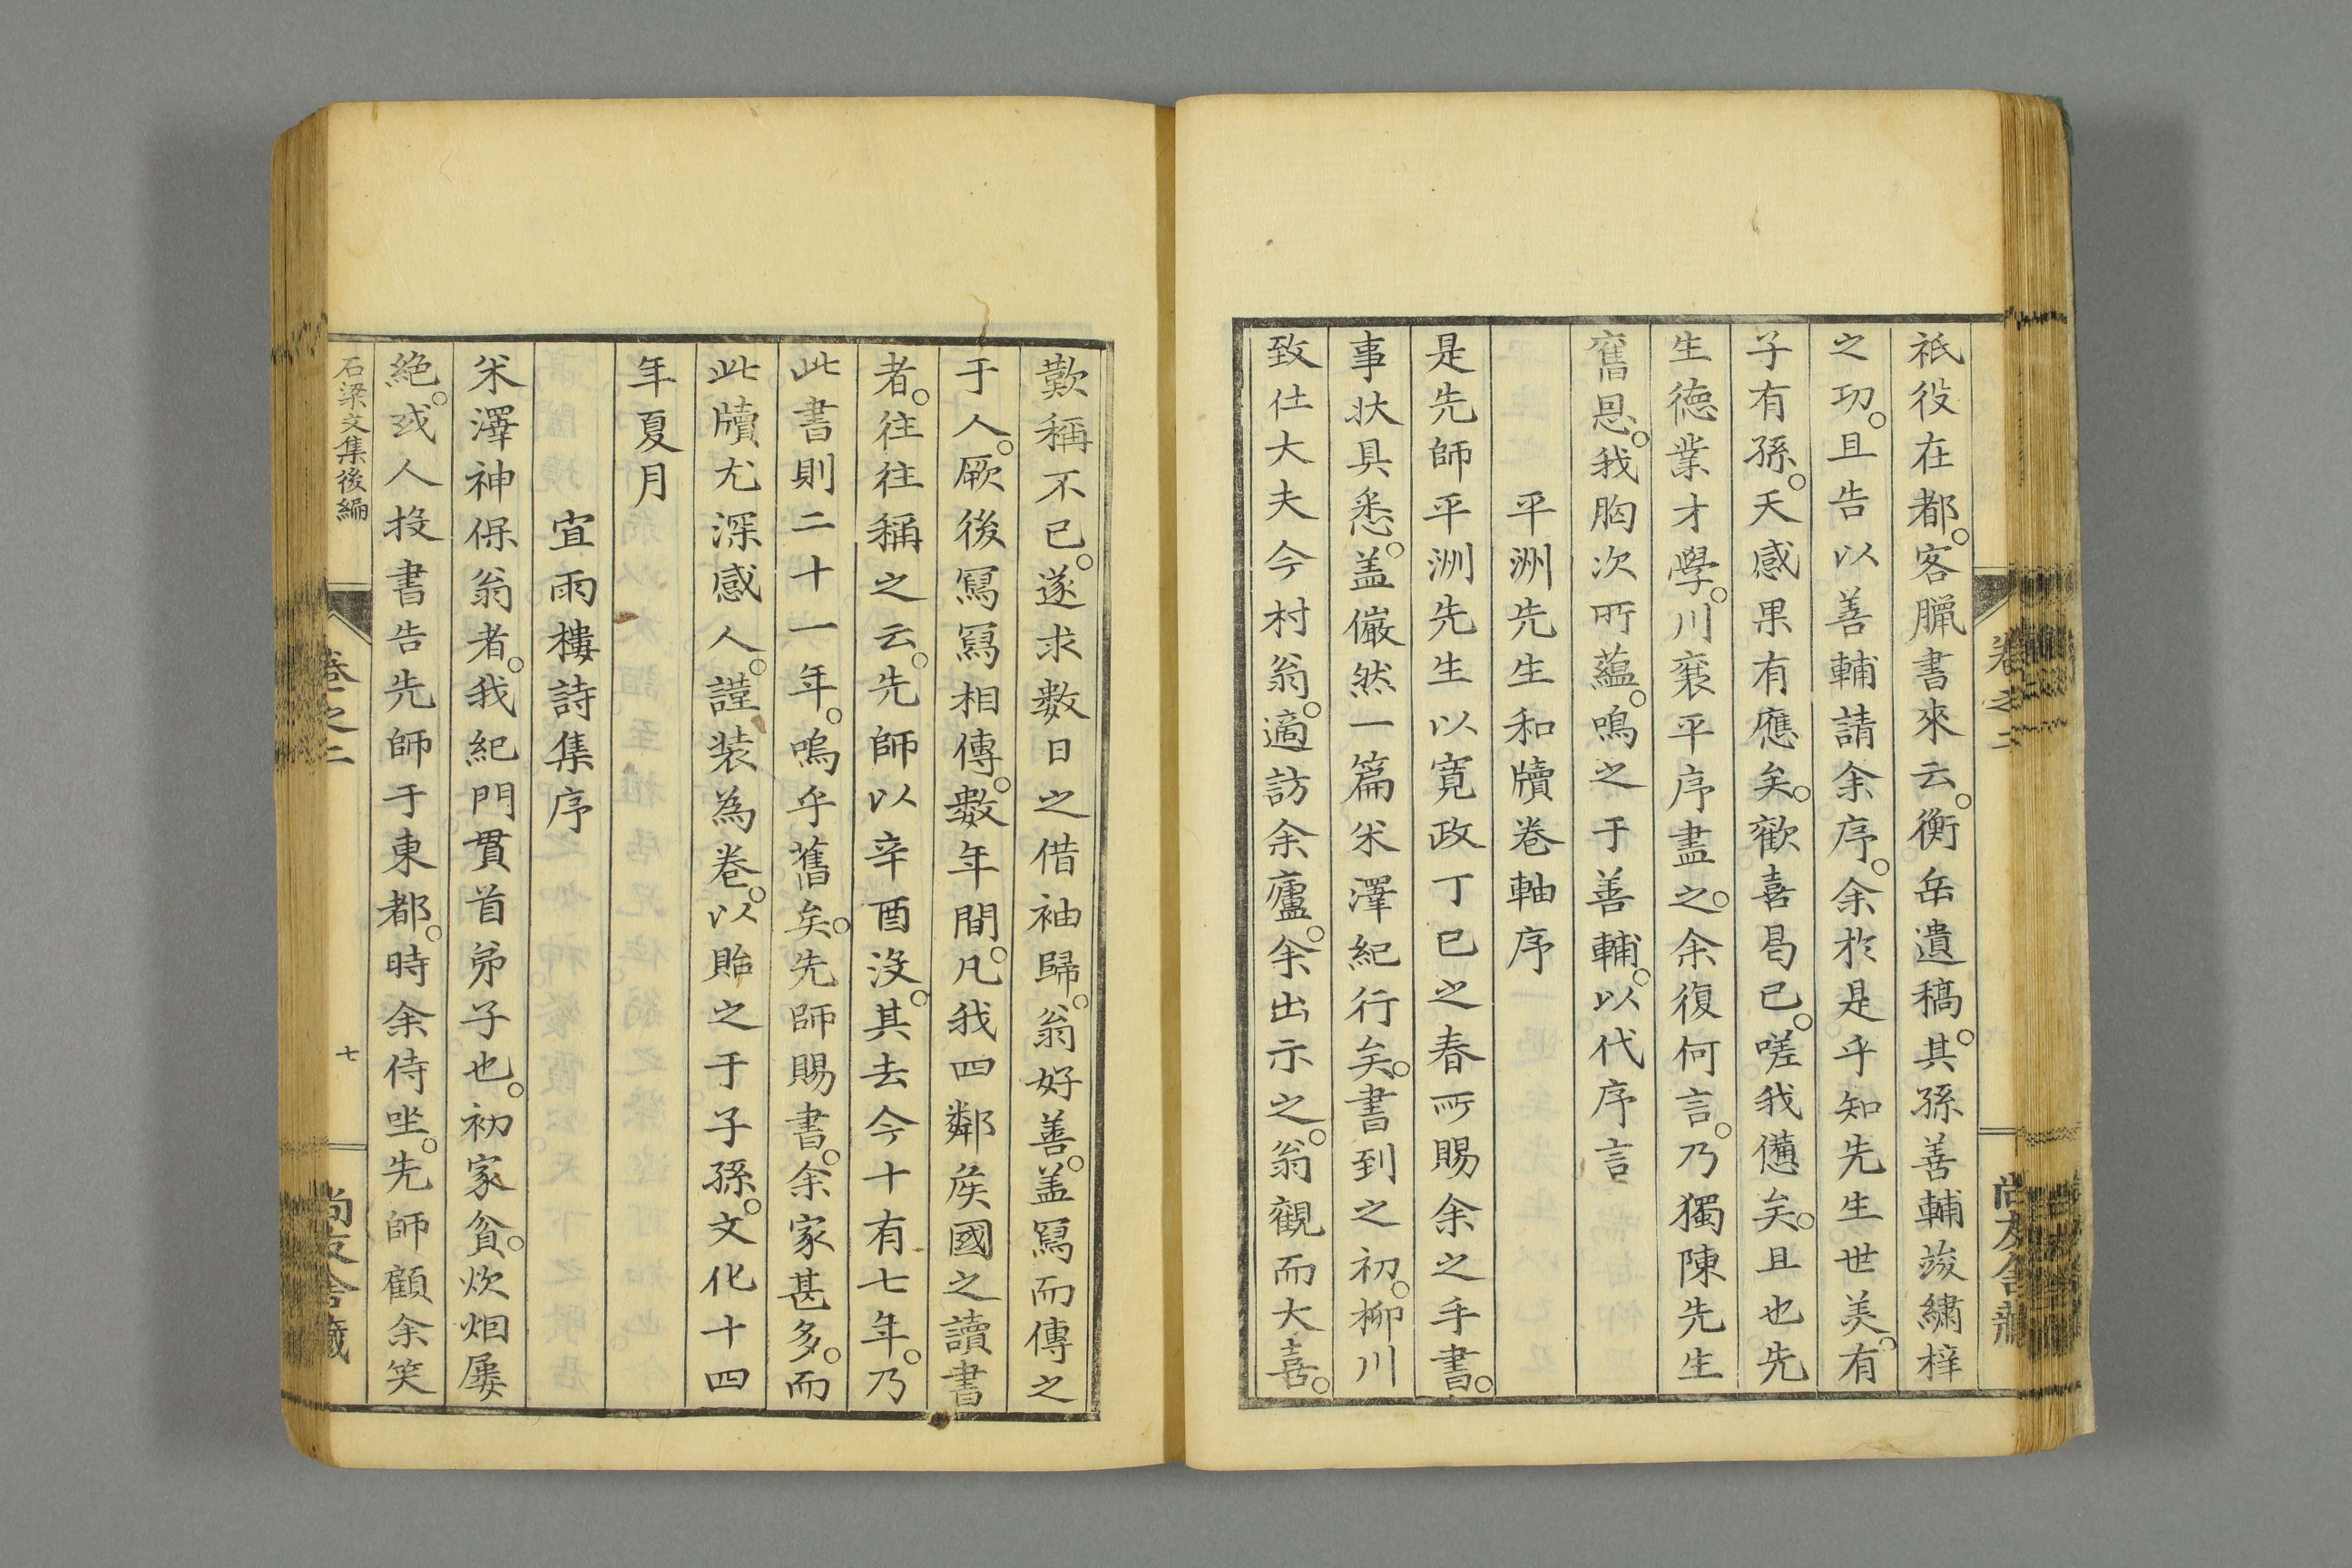 祇役在都。客臘書來云。衡岳遺稿。其孫善輔竣繡梓
之功。且告以善輔請余序。余於是乎知先生世美。有
子有孫。天感果有應矣。歡喜曷已。嗟我憊矣。且也先
生德業才學。川襃平序盡之。余復何言。乃獨陳先生
舊恩。我胸次所蘊。鳴之于善輔。以代序言
平洲先生和牘卷軸序
是先師平洲先生以寛政丁巳之春所賜余之手書。
事状具悉。盖儼然一篇米澤紀行矣。書到之初。柳川
致仕大夫今村翁。適訪余廬。余出示之。翁觀而大喜。
歎稱不已。遂求數日之借袖歸。翁好善。盖寫而傳之
于人。厥後寫寫相傳。數年間。凡我四鄰矦國之讀書
者。往往稱之云。先師以辛酉沒。其去今十有七年。乃
此書則二十一年。嗚乎舊矣。先師賜書。余家甚多。而
此牘尤深感人。謹装為卷。以貽之于子孫。文化十四
年夏月
宜雨樓詩集序
米澤神保翁者。我紀門貫首弟子也。初家貧。炊烟屢
絶。或人投書告先師于東都。時余侍坐。先師顧余笑
石梁文集後編
卷之二
七
尚友舍藏